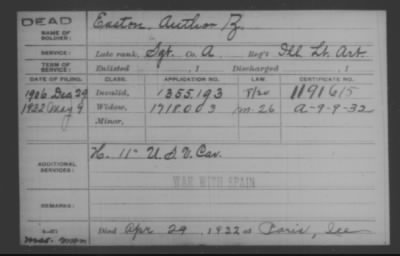 DEAD
NAME OF SOLDIER: Easton, Author Z.
SERVICE: Late rank, Sgt. Co. A Reg't Ill Lt. Art.
TERM OF SERVICE: Enlisted , 1 Discharged , 1
DATE OF FILING. CLASS. APPLICATION NO. LAW. CERTIFICATE NO.
1906 Dec 29 Invalid, 1355193 1191615
1922 May 9 Widow, 1718003 m-26 A-9-9-32
Minor,
ADDITIONAL SERVICES: H. 11" U.S.V. Cav.
WAR WITH SPAIN
REMARKS:
Died Apr 29, 1922 at Paris, Ill